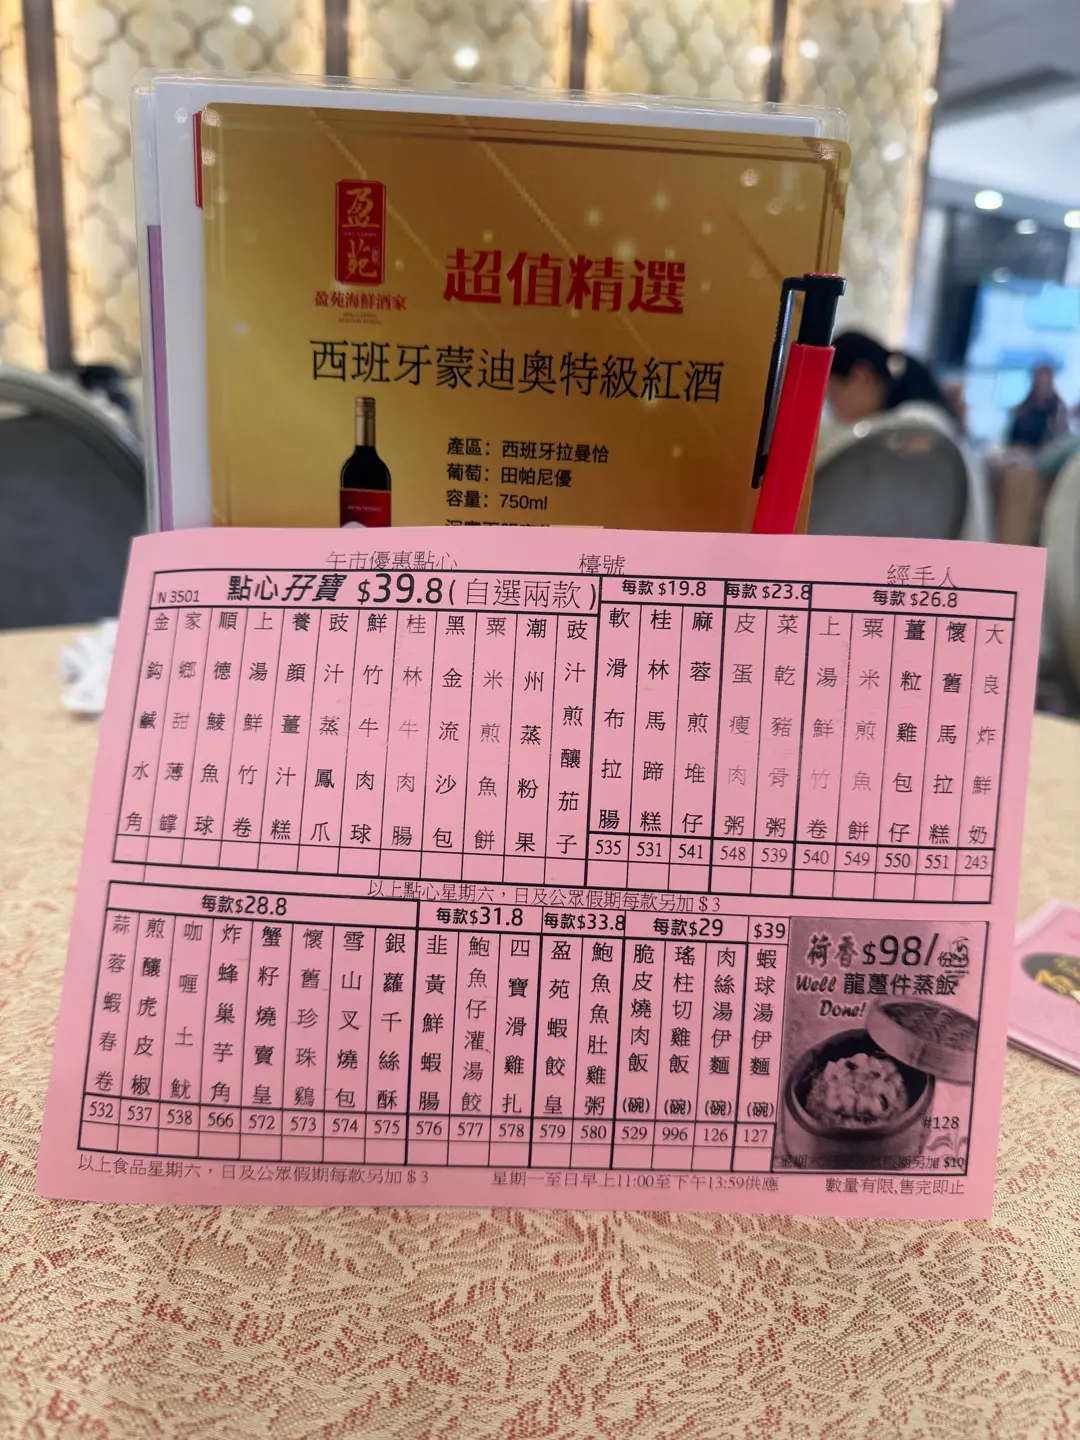 盈苑
盈苑海鮮酒家
超值精選
西班牙蒙迪奧特級紅酒
產區：西班牙拉曼恰
葡萄：田帕尼優
容量：750ml
午市優惠點心
檯號
經手人
N 3501
點心孖寶 $39.8(自選兩款)
每款 $19.8
每款 $23.8
每款 $26.8
金鈎鹹水角
家鄉甜薄罉
順德鯪魚球
上湯鮮竹卷
養顏薑汁糕
豉汁蒸鳳爪
鮮竹牛肉球
桂林牛肉腸
黑金流沙包
粟米煎魚餅
潮州蒸粉果
豉汁煎釀茄子
軟滑布拉腸 535
桂林馬蹄糕 531
麻蓉煎堆仔 541
皮蛋瘦肉粥 548
菜乾豬骨粥 539
上湯鮮竹卷 540
粟米煎魚餅 549
薑粒雞包仔 550
懷舊馬拉糕 551
大良炸鮮奶 243
以上點心星期六，日及公眾假期每款另加＄3
每款$28.8
每款$31.8
每款$33.8
每款$29
$39
蒜蓉蝦春卷 532
煎釀虎皮椒 537
咖喱土魷 538
炸蜂巢芋角 566
蟹籽燒賣皇 572
懷舊珍珠鷄 573
雪山叉燒包 574
銀蘿千絲酥 575
韭黃鮮蝦腸 576
鮑魚仔灌湯餃 577
四寶滑雞扎 578
盈苑蝦餃皇 579
鮑魚魚肚雞粥 580
脆皮燒肉飯(碗) 529
瑤柱切雞飯(碗) 996
肉絲湯伊麵(碗) 126
蝦球湯伊麵(碗) 127
荷香 $98/份
Well 龍躉件蒸飯
Done!
#128
以上食品星期六，日及公眾假期每款另加＄3
星期一至日早上11:00至下午13:59供應
數量有限,售完即止